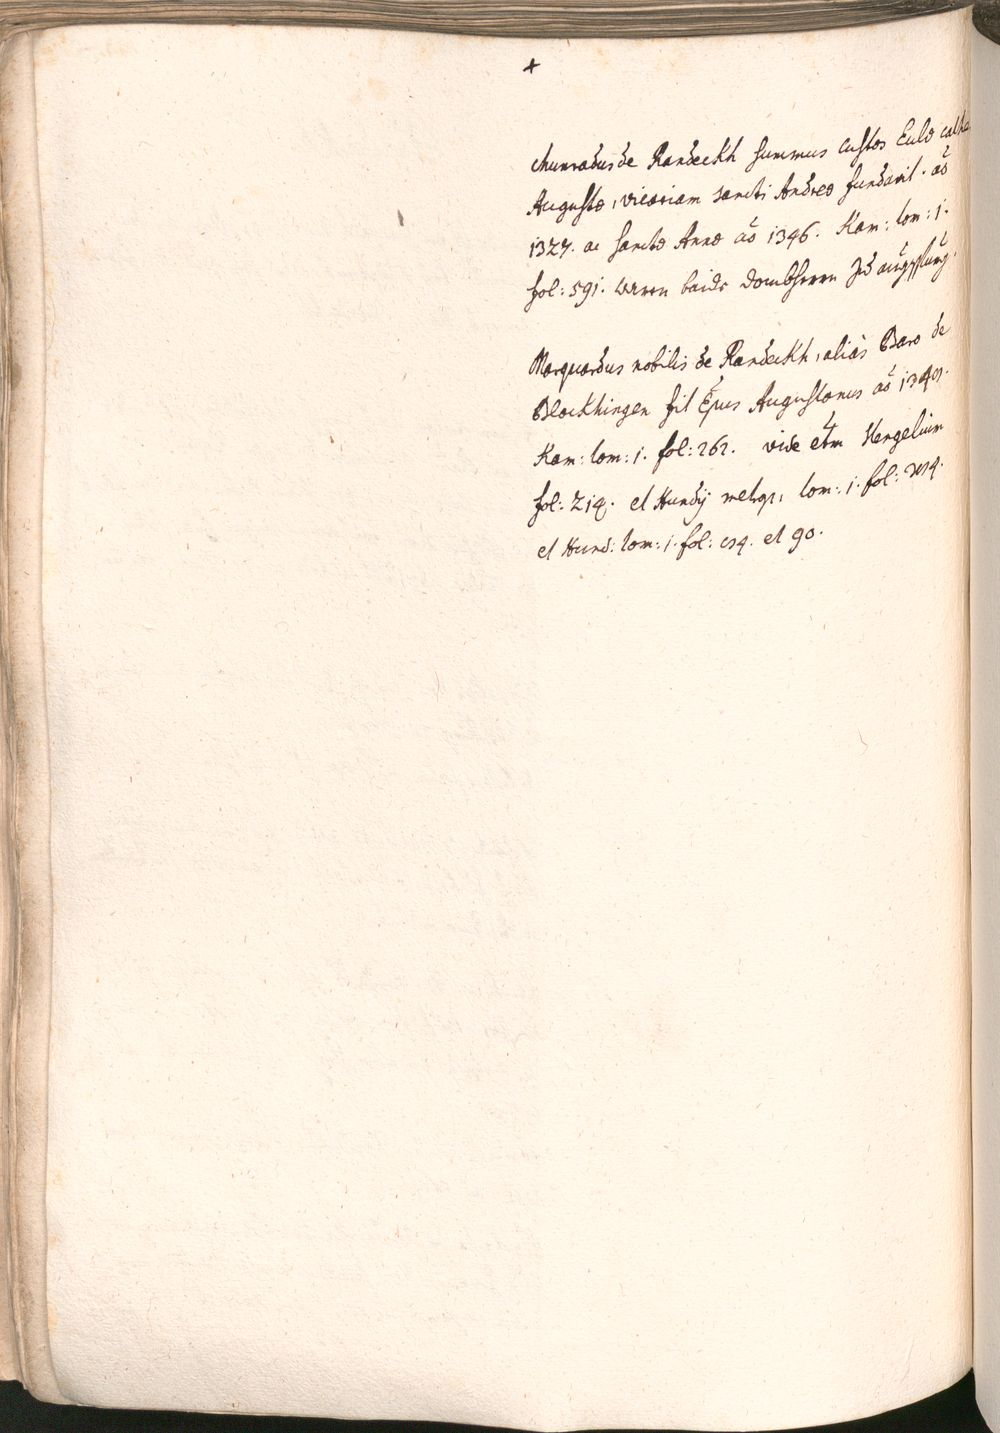 +
Chunradus de Randeckh summus custos Eulo cath
Augusto, vicariam sancti Andreo fundavit. ao
1327. ac sancto Anno ao 1346. Kam: tom: 1.
fol: 591. waren baide Dombherrn Zů aůgspůrg.
Marquardus nobilis de Randeckh, aliàs Baro de
Blockhingen fit Epus Augustanus ao
Kam: tom: 1. fol: 262. vide etm Hengelium
fol: et Hundij metrop, tom: 1. fol:
et Hund: tom: 1. fol: et 90.